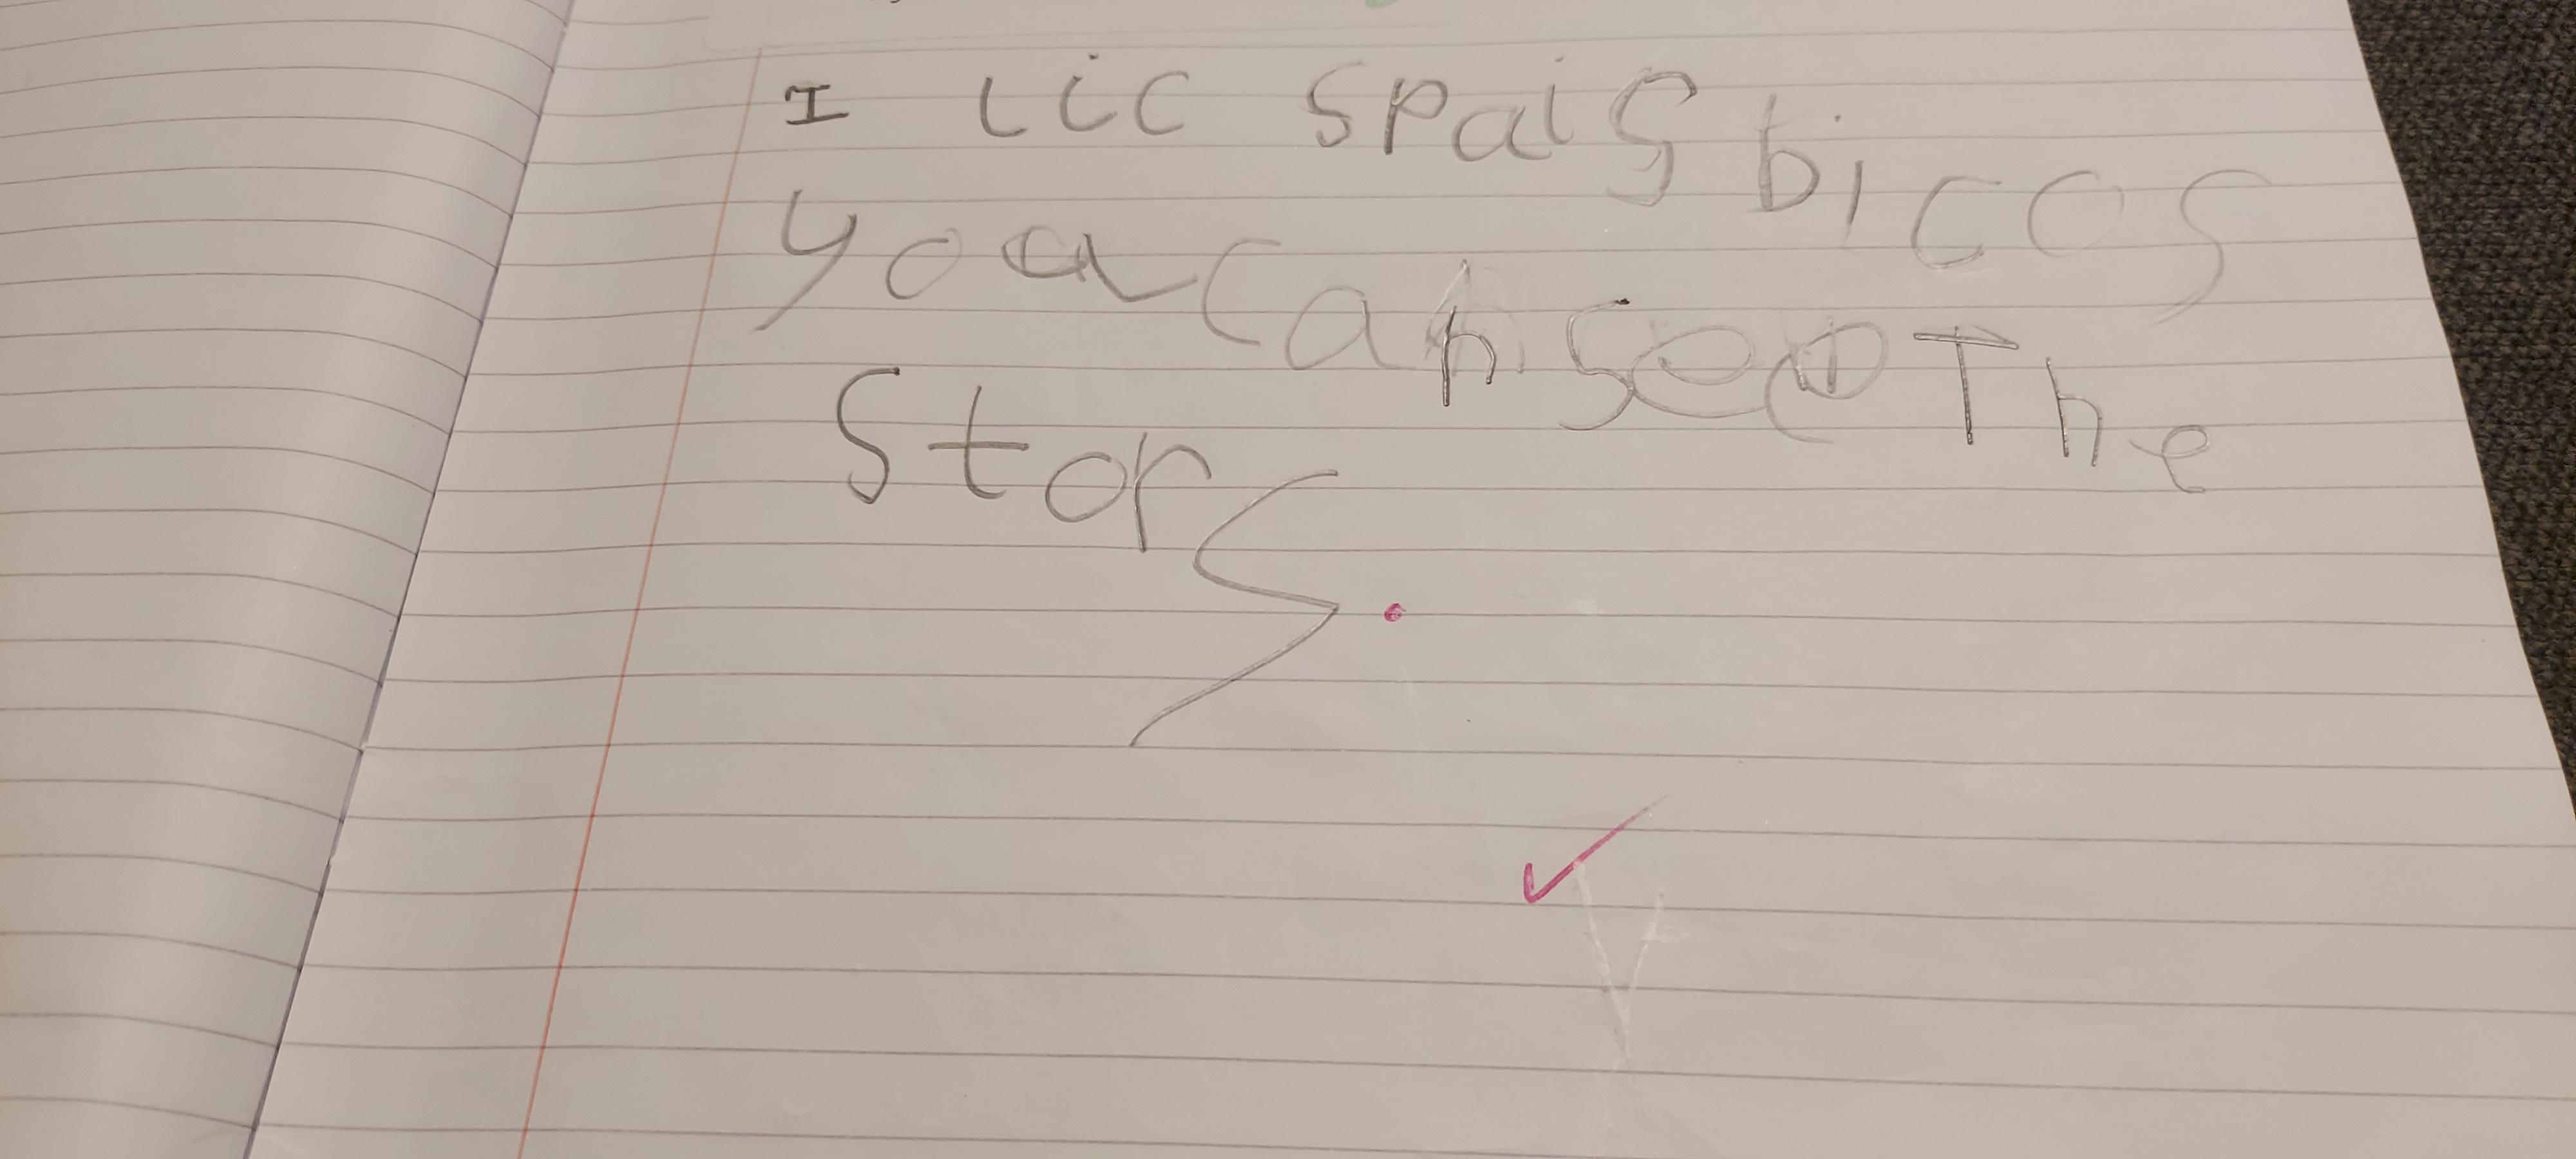 I lic spais bicos
you can see The
stors.